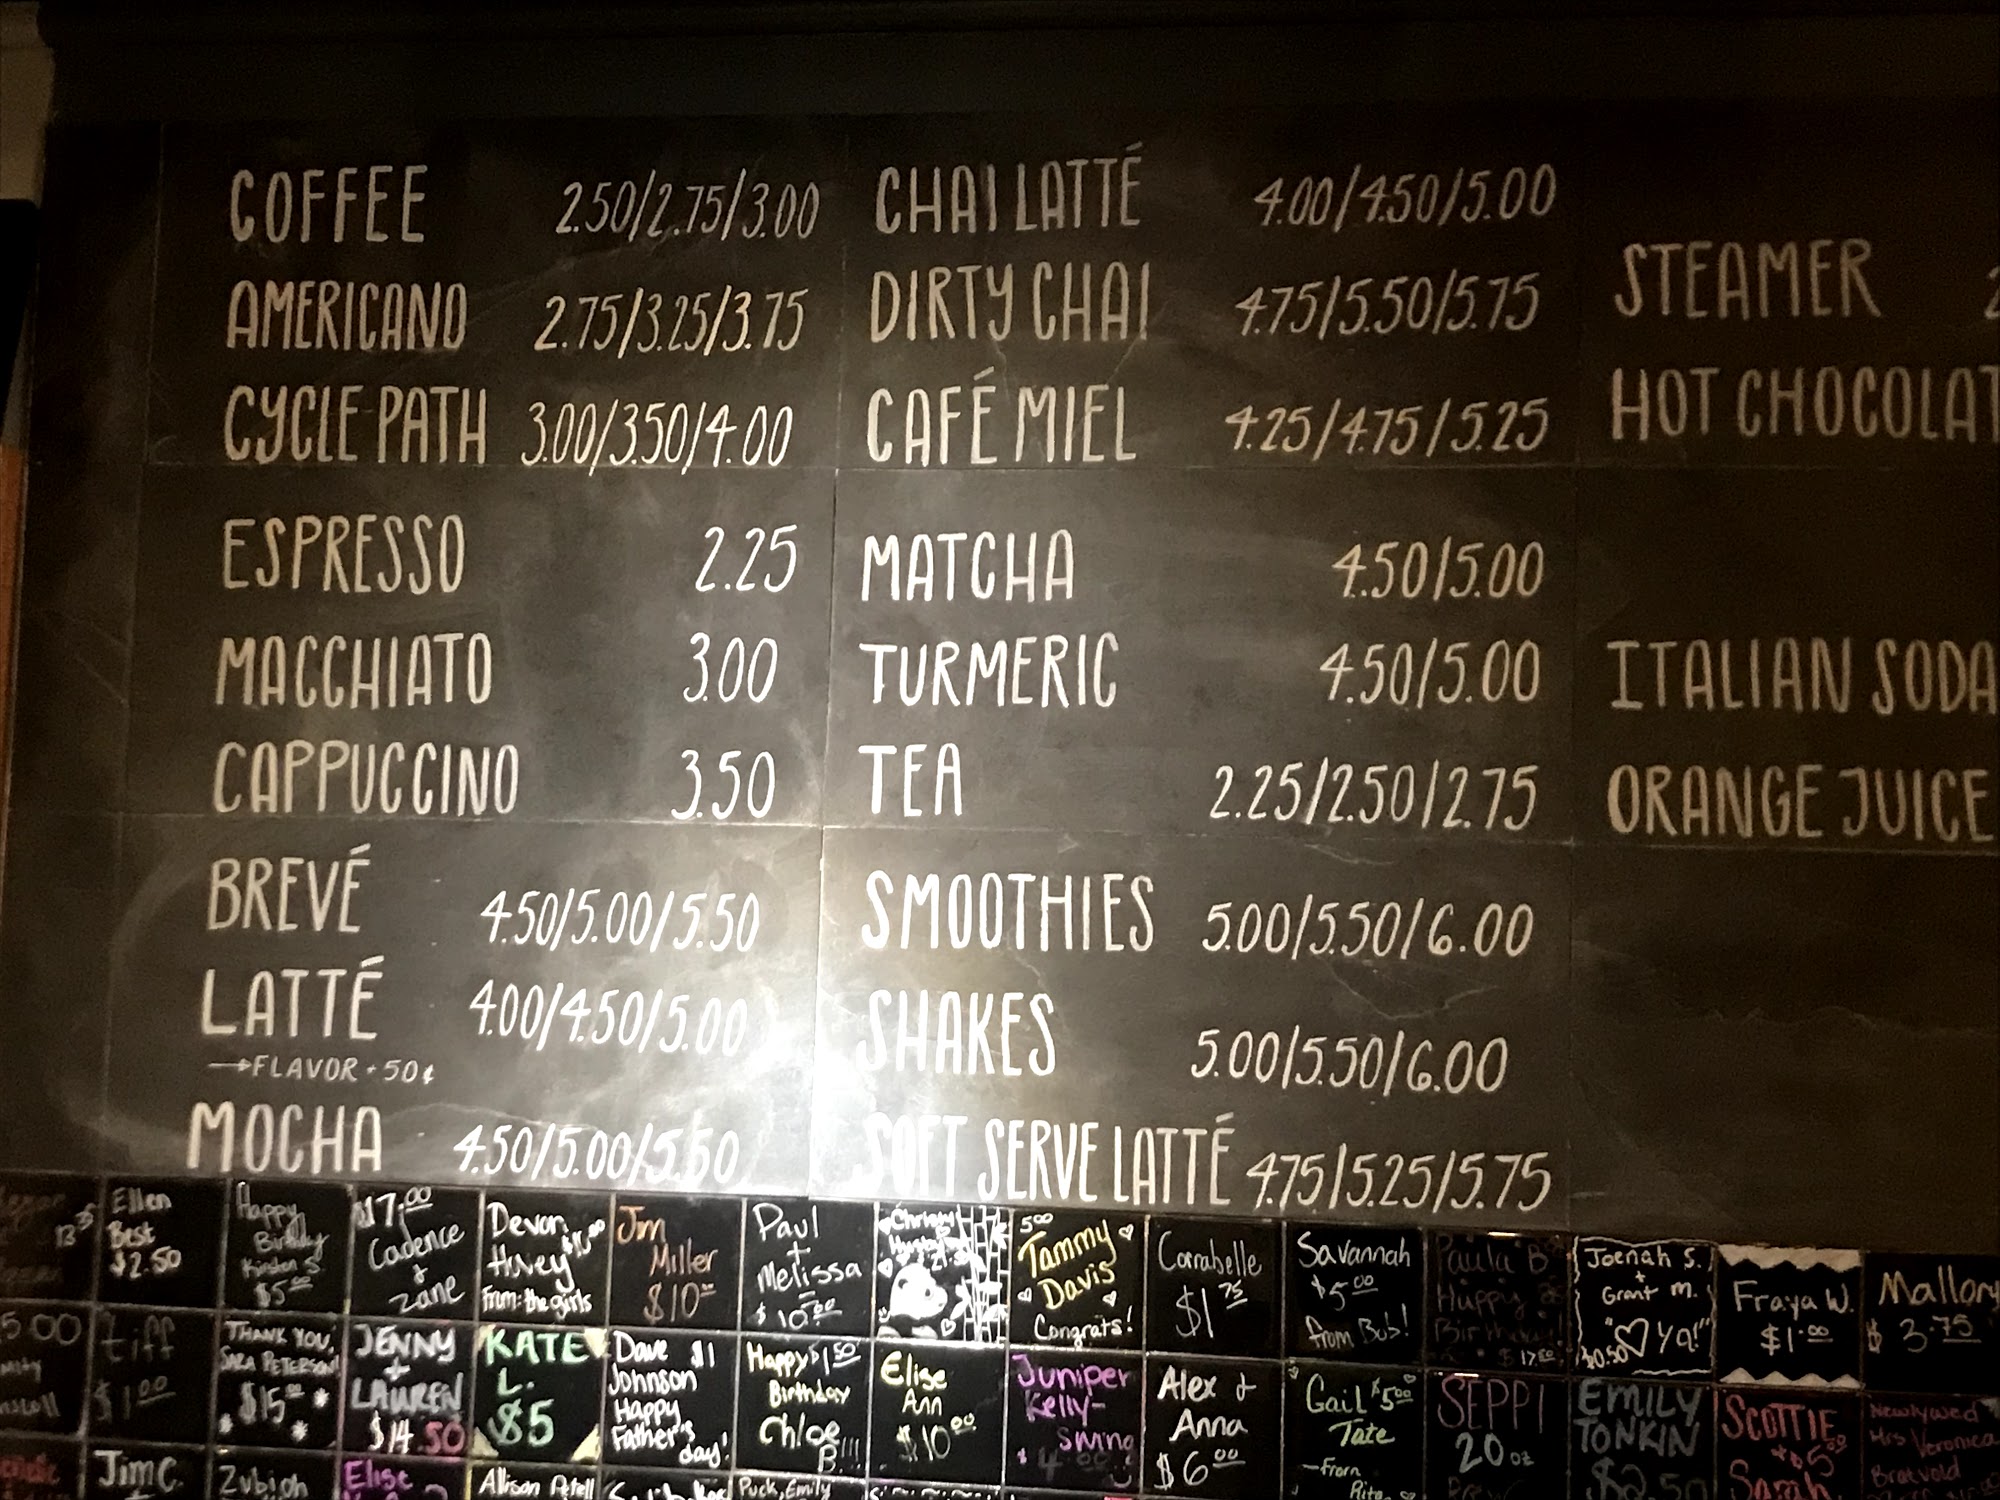 COFFEE 2.50/2.75/3.00
AMERICANO 2.75/3.25/3.75
CYCLE PATH 3.00/3.50/4.00
ESPRESSO 2.25
MACCHIATO 3.00
CAPPUCCINO 3.50
BREVÉ 4.50/5.00/5.50
LATTÉ 4.00/4.50/5.00
→FLAVOR • 50¢
MOCHA 4.50/5.00/5.50
CHAI LATTÉ 4.00/4.50/5.00
DIRTY CHAI 4.75/5.50/5.75
CAFÉ MIEL 4.25/4.75/5.25
MATCHA 4.50/5.00
TURMERIC 4.50/5.00
TEA 2.25/2.50/2.75
SMOOTHIES 5.00/5.50/6.00
SHAKES 5.00/5.50/6.00
SOFT SERVE LATTÉ 4.75/5.25/5.75
STEAMER
HOT CHOCOLAT
ITALIAN SODA
ORANGE JUICE
Ellen
Best
$2.50
Happy
Kirsten S.
$5.00
$17.00
Cadence
+
Zane
Devon
From: the girls
Jim
Miller
$10
Paul
+
Melissa
$10.00
5.00
Tammy
Davis
Congrats!
Carrabelle
$1.75
Savannah
$5.00
from Bob!
Paula B
Happy
Joenah S.
+
Grant M.
"♡ Ya!"
Fraya W.
$1.00
Mallory
$3.75
5.00
tiff
$1.00
THANK YOU,
SARA PETERSON!
$15
JENNY
+
LAUREN
$14.50
KATE
L.
$5
Dave $1
Johnson
Happy
Father's
day!
Happy $1.50
Birthday
Chloe
B.!!!
Elise
Ann
$10.00
Juniper
Kelly-
Alex +
Anna
$6.00
Gail $5.00
Tate
-from
Rita
SEPPI
20 oz
EMILY
TONKIN
$2.50
SCOTTIE
+
Sarah
$5.00
Newlywed
Mrs Veronica
Bratvold
Jim C.
Zubigh
Elise
Allison Petell
Puck, Emily